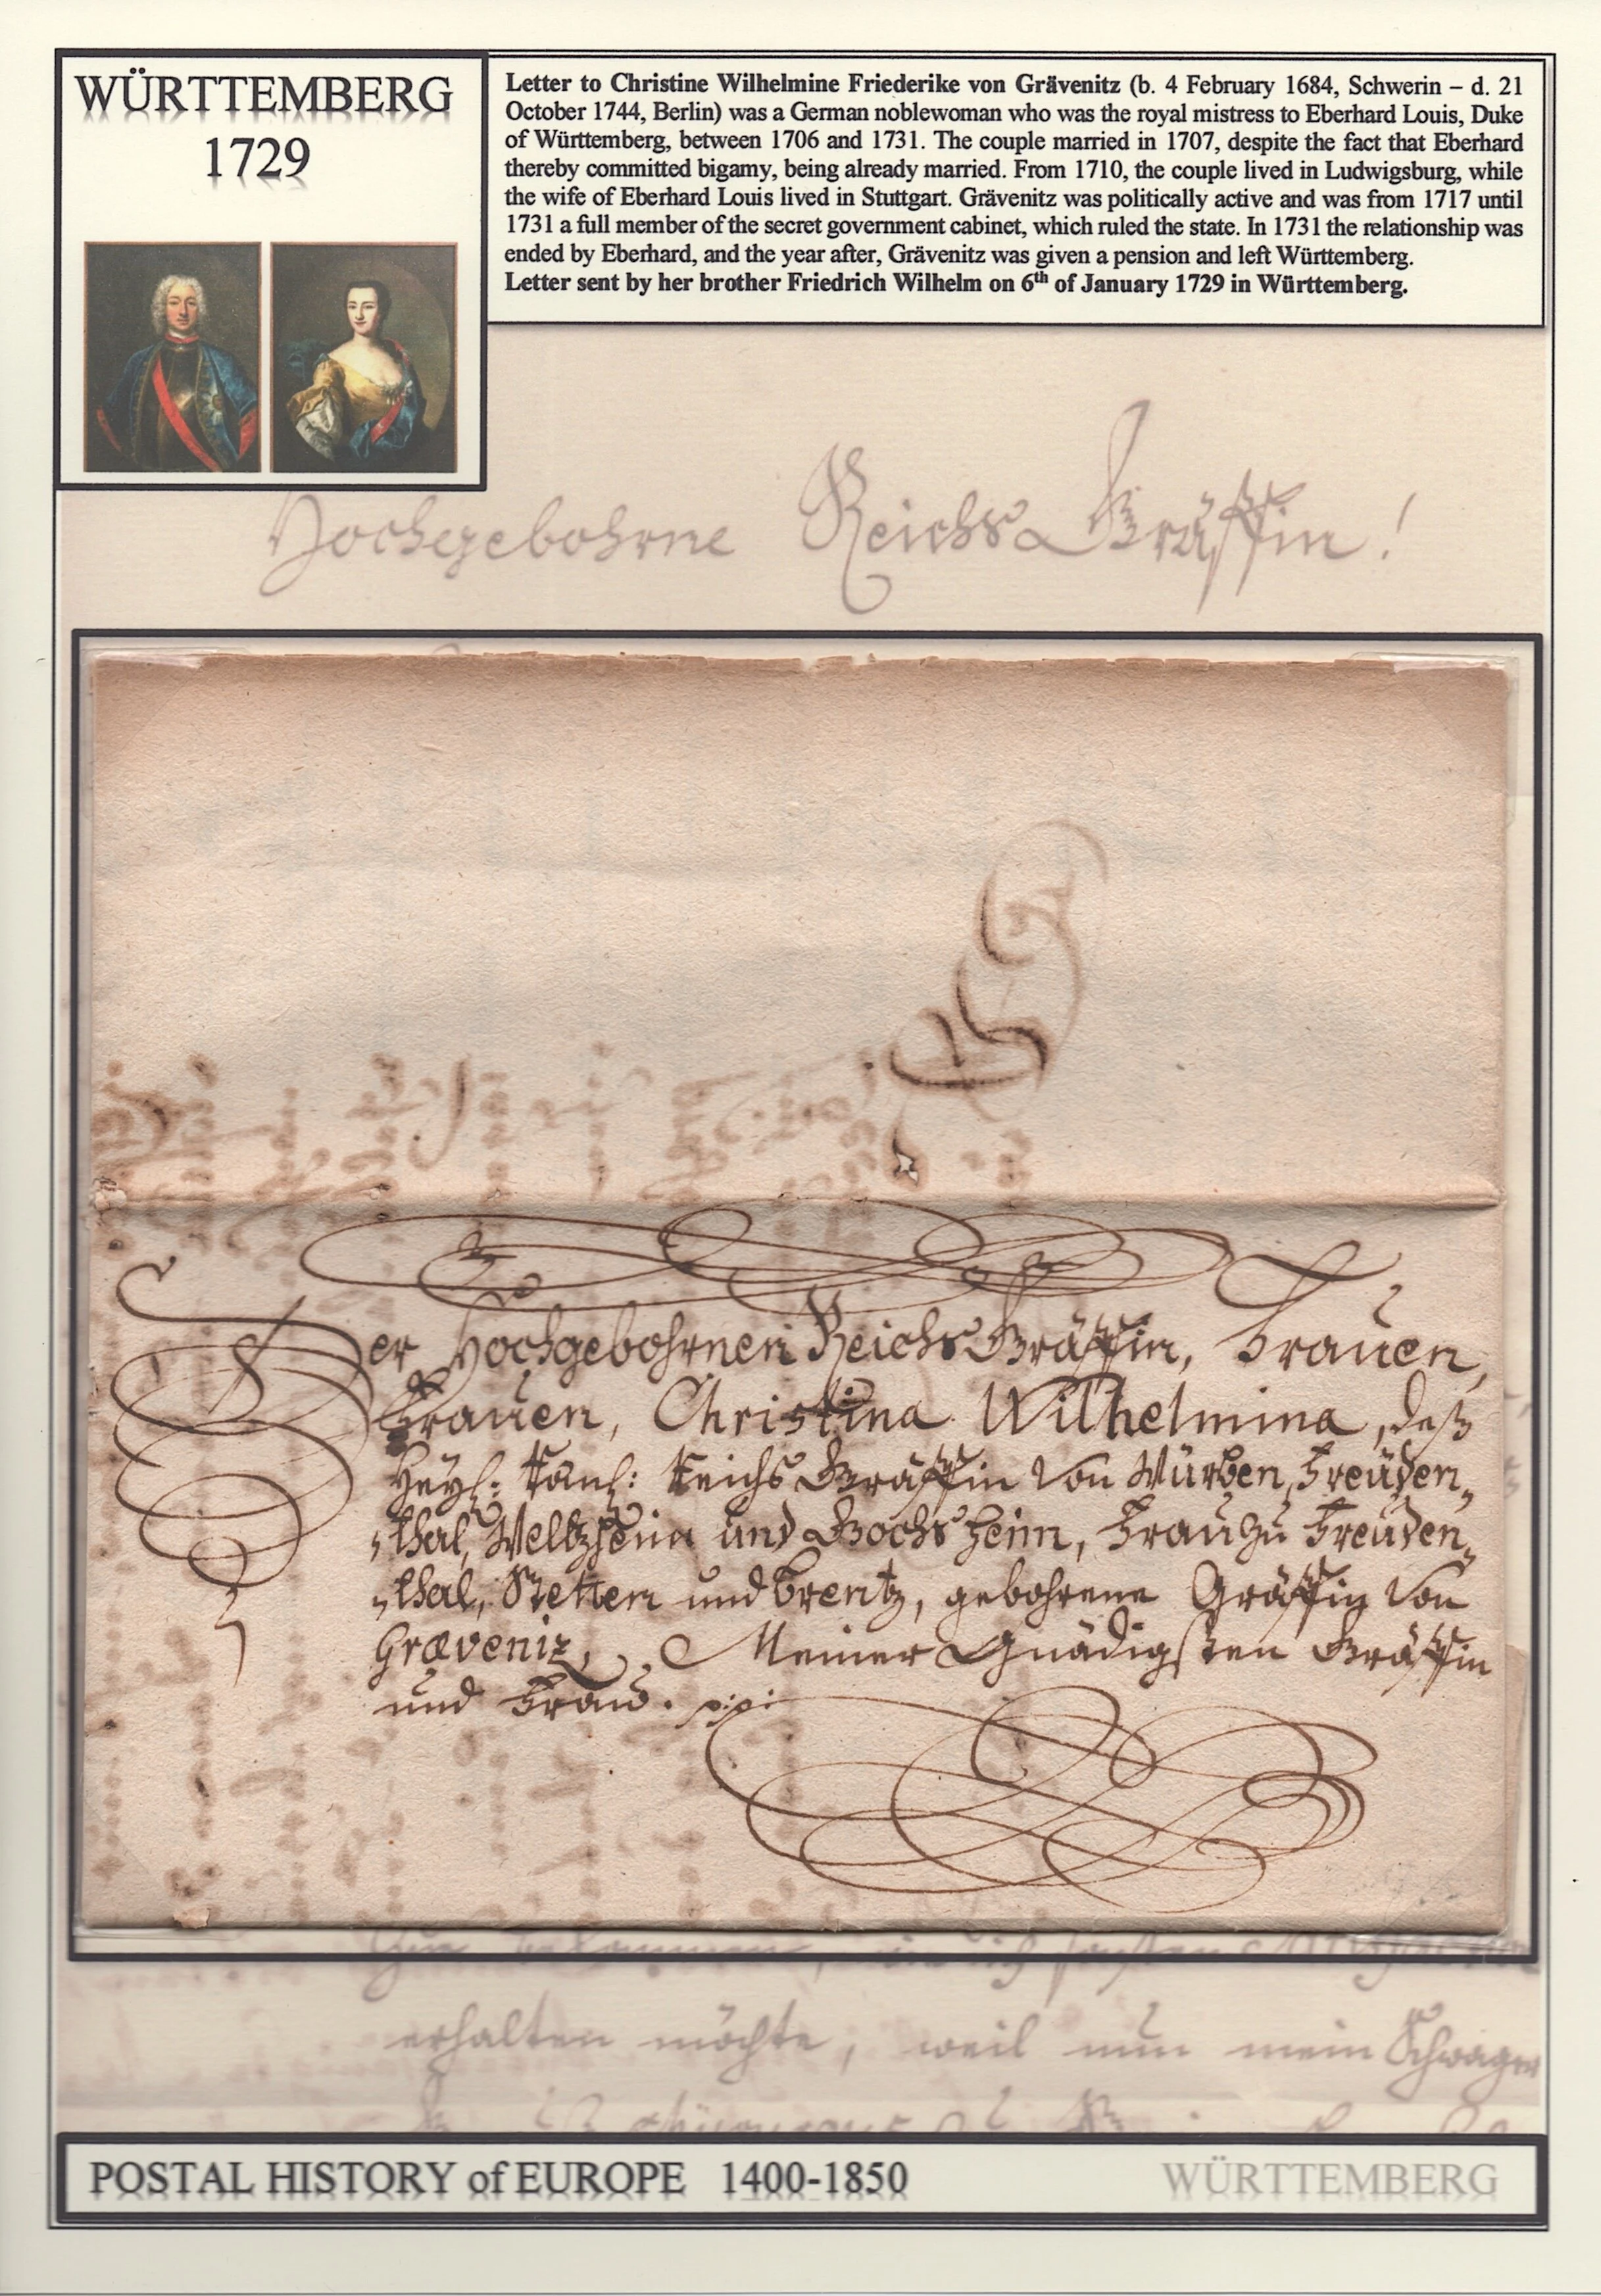 WÜRTTEMBERG
1729
Letter to Christine Wilhelmine Friederike von Grävenitz (b. 4 February 1684, Schwerin – d. 21
October 1744, Berlin) was a German noblewoman who was the royal mistress to Eberhard Louis, Duke
of Württemberg, between 1706 and 1731. The couple married in 1707, despite the fact that Eberhard
thereby committed bigamy, being already married. From 1710, the couple lived in Ludwigsburg, while
the wife of Eberhard Louis lived in Stuttgart. Grävenitz was politically active and was from 1717 until
1731 a full member of the secret government cabinet, which ruled the state. In 1731 the relationship was
ended by Eberhard, and the year after, Grävenitz was given a pension and left Württemberg.
Letter sent by her brother Friedrich Wilhelm on 6th of January 1729 in Württemberg.
Hochgebohrne Reichs Gräffin!
Der Hochgebohrnen Reichs Gräffin, Frauen,
Frauen, Christina Wilhelmina, deß
Heyl: Röm: Reichs Gräffin von Würben, Freüden„
„thal, Weltzheim und Gochsheim, Frau zu Freüden„
„thal, Stetten und Brentz, gebohrene Gräffin von
Græveniz, Meiner Gnädigsten Gräffin
und Frau.
erhalten möchte, weil nun mein Schwager
POSTAL HISTORY of EUROPE 1400-1850
WÜRTTEMBERG